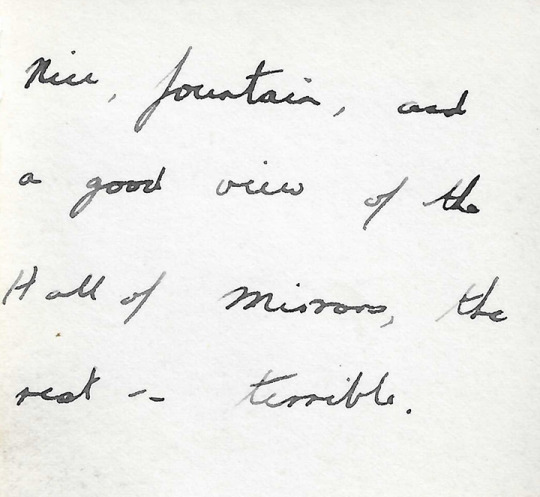 Nice, fountain, and
a good view of the
Hall of Mirrors, the
rest -- terrible.